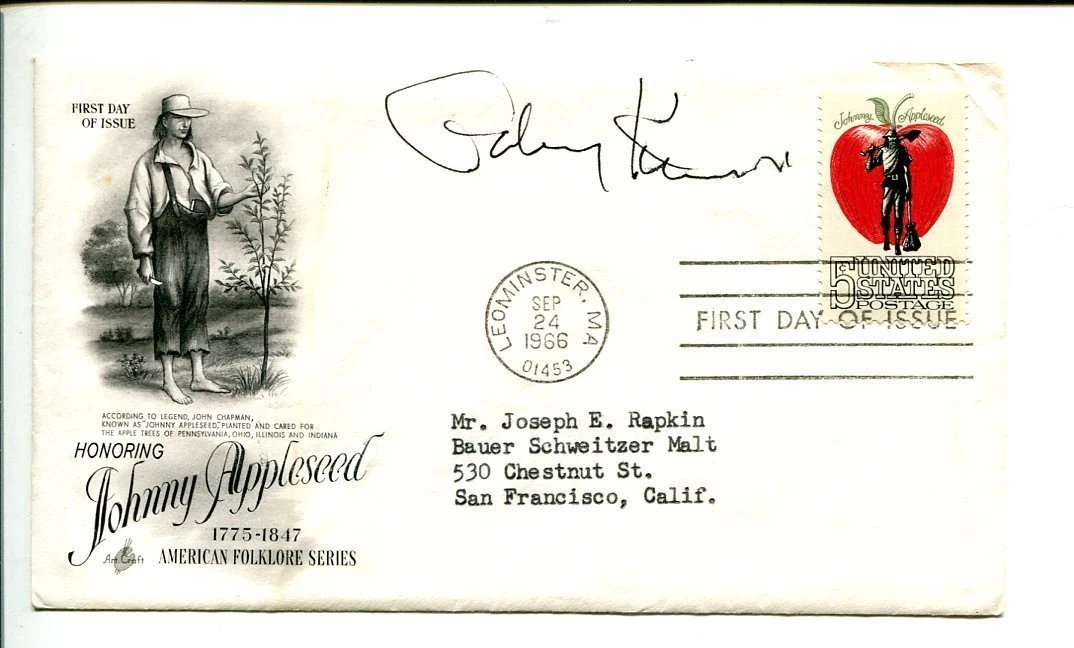 FIRST DAY
OF ISSUE
Johnny Appleseed
5¢ UNITED
STATES
POSTAGE
LEOMINSTER, MA
SEP
24
1966
01453
FIRST DAY OF ISSUE
ACCORDING TO LEGEND, JOHN CHAPMAN,
KNOWN AS "JOHNNY APPLESEED," PLANTED AND CARED FOR
THE APPLE TREES OF PENNSYLVANIA, OHIO, ILLINOIS AND INDIANA
HONORING
Johnny Appleseed
1775-1847
Art Craft AMERICAN FOLKLORE SERIES
Mr. Joseph E. Rapkin
Bauer Schweitzer Malt
530 Chestnut St.
San Francisco, Calif.